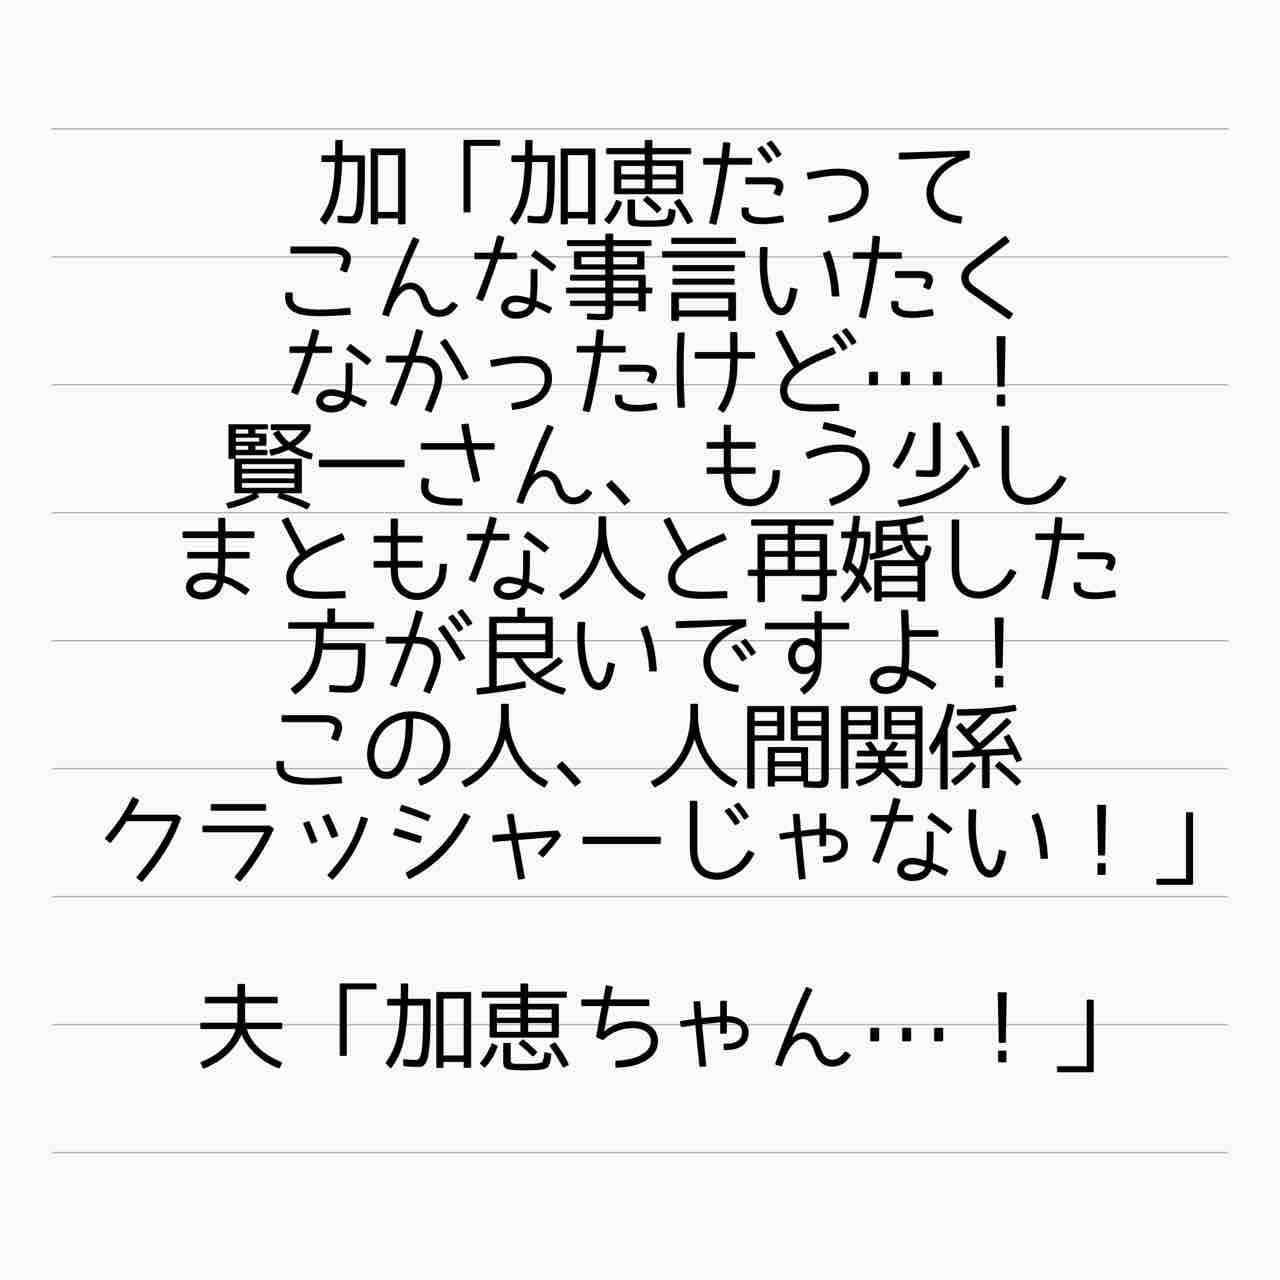 加「加恵だって
こんな事言いたく
なかったけど…！
賢一さん、もう少し
まともな人と再婚した
方が良いですよ！
この人、人間関係
クラッシャーじゃない！」
夫「加恵ちゃん…！」